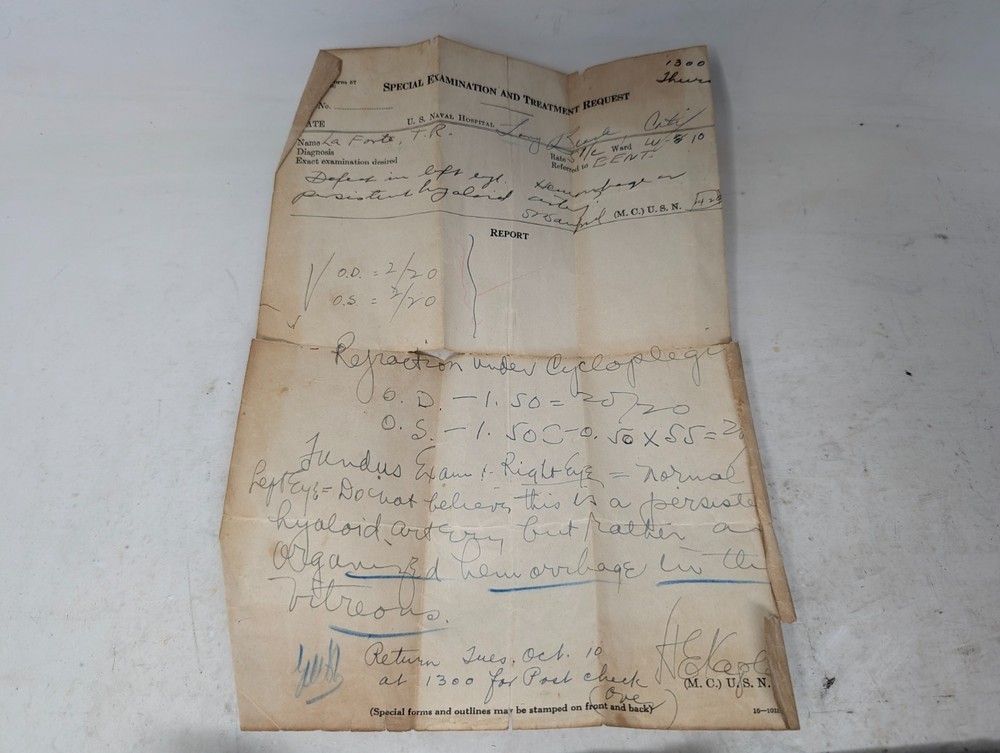 1300
Thurs
SPECIAL EXAMINATION AND TREATMENT REQUEST
No.
U. S. NAVAL HOSPITAL Long Beach, Calif
Name La Forte, T. R. Rate Ward W-8/10
Diagnosis Referred to E.E.N.T.
Exact examination desired
Defect in left eye. Hemorrhage or
persistent hyaloid artery
(M. C.) U. S. N.
REPORT
O.D. = 2/20
O.S. = 2/20
Refraction under Cyclopleg
O. D. – 1.50 = 20/20
O. S. – 1.50 ⊃ –0.50 X 55 = 20
Fundus Exam: Right Eye = normal
Left Eye = Do not believe this is a persiste
hyaloid artery but rather an
organized hemorrhage in the
Vitreous.
Return Tues. Oct. 10
at 1300 for Post check
(M. C.) U. S. N.
(Over)
(Special forms and outlines may be stamped on front and back)